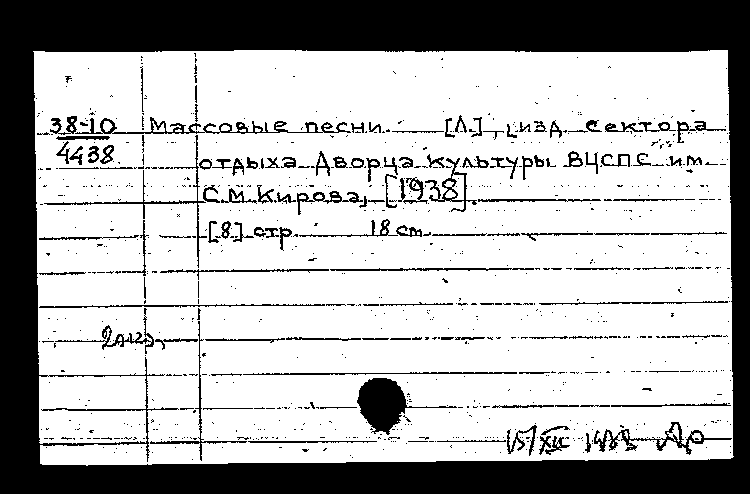 38-10 Массовые песни. [Л.], изд. сектора
4438 отдыха Дворца культуры ВЦСПС им.
С.М. Кирова, [1938].
[8] стр. 18 см.
15/XII